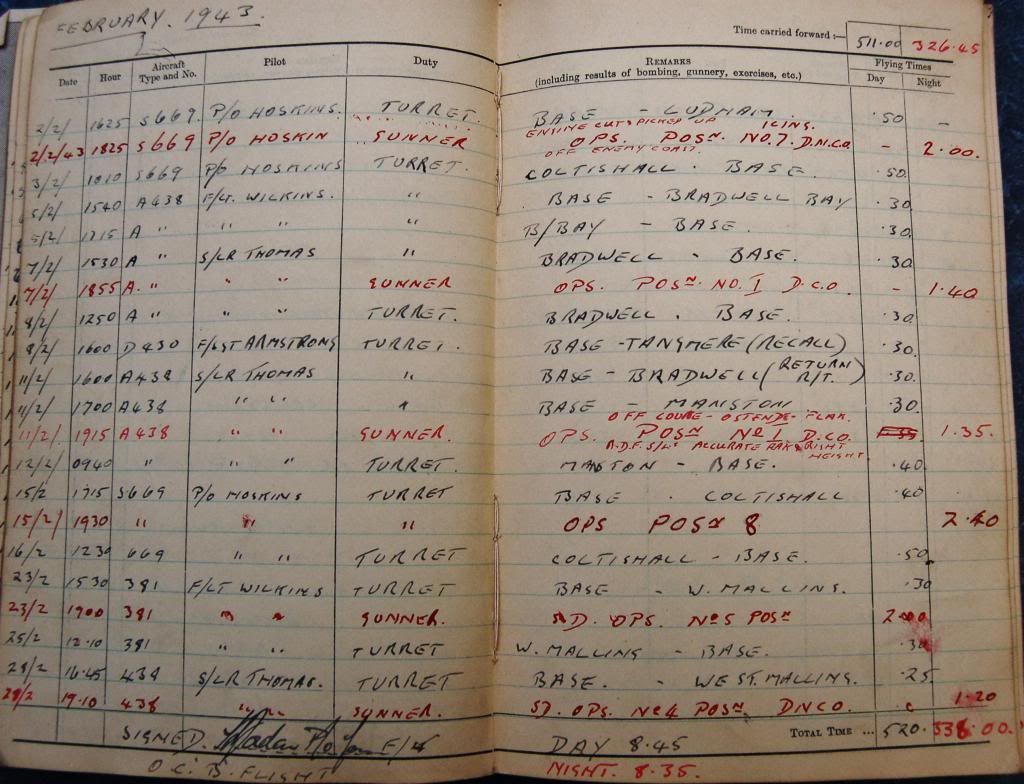 FEBRUARY. 1943.
Time carried forward :— 511.00 326.45
Date Hour Aircraft Type and No. Pilot Duty REMARKS (including results of bombing, gunnery, exercises, etc.) Flying Times Day Night
2/2/ 1625 S669. P/O HOSKINS. TURRET. BASE - LUDHAM .50 -
ENGINE CUTS PICKED UP ICING.
2/2/43 1825 S669 P/O HOSKIN GUNNER OPS. POSN NO.7. D.N.C.O. - 2.00.
OFF ENEMY COAST.
3/2/ 1010 S669 P/O HOSKINS TURRET. COLTISHALL. BASE. .50.
5/2/ 1540 A438 F/LT. WILKINS. " BASE - BRADWELL BAY .30.
5/2/ 1715 A " " " " B/BAY - BASE. .30.
7/2/ 1530 A " S/LR THOMAS " BRADWELL - BASE. .30.
7/2/ 1855 A. " " " GUNNER OPS. POSN. NO. 1 D.C.O. - 1.40
8/2/ 1250 A " " " TURRET. BRADWELL. BASE. .30.
8/2/ 1600 D430 F/LST ARMSTRONG TURRET. BASE - TANGMERE (RECALL) .30.
11/2/ 1600 A438 S/LR THOMAS " BASE - BRADWELL (RETURN R/T.) .30.
11/2/ 1700 A438 " " " BASE - MANSTON .30.
OFF COURSE - OSTENDE - FLAK.
11/2/ 1915 A438 " " GUNNER. OPS. POSN No 1 D.C.O. 1.35.
R.D.F. S/LS ACCURATE RANGE RIGHT HEIGHT.
12/2/ 0940 " " " TURRET. MASTON - BASE. .40
15/2 1715 S669 P/O HOSKINS TURRET BASE. COLTISHALL .40
15/2/ 1930 " " " OPS POSN 8 2.40
16/2 1230 669 " " TURRET COLTISHALL - BASE. .50.
23/2 1530 381 F/LT WILKINS TURRET BASE - W. MALLING. .30
23/2 1900 381 " " GUNNER. SD. OPS. No 5 POSN 2.00
25/2 12.10 381 " " TURRET W. MALLING - BASE. .30
28/2 16.45 438 S/LR THOMAS. TURRET BASE. - WEST. MALLING. .25
28/2 19.10 438 " " GUNNER. SD. OPS. No 4 POSN DNCO. 1.20
SIGNED. F/Lt DAY 8.45 TOTAL TIME ... 520. 338.00.
O.C. B. FLIGHT NIGHT. 8.35.